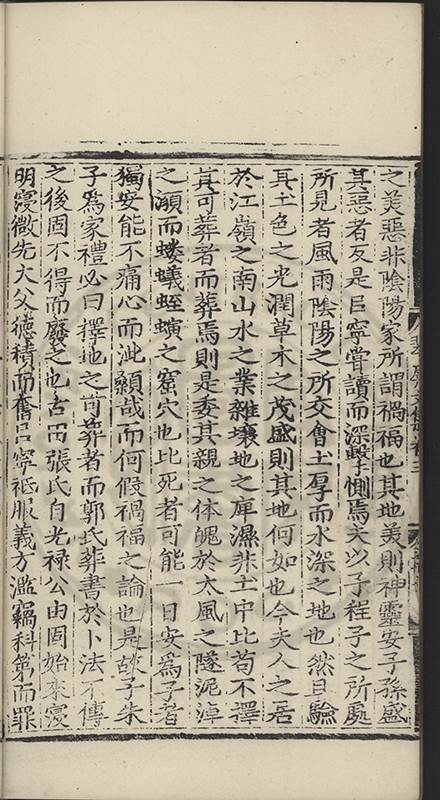 之美惡非陰陽家所謂禍福也其地美則神靈安子孫盛
其惡者反是臣寧嘗讀而深擊惻焉夫以子程子之所處
所見者風雨陰陽之所交會土厚而水深之地也然且驗
其土色之光潤草木之茂盛則其地何如也今夫人之居
於江嶺之南山水之業雜壤地之庳濕非土中比苟不擇
其可葬者而葬焉則是委其親之体魄於大風之隧泥淖
之洄而螻蟻蛭蟥之窟穴也比死者可能一日安為子者
獨安能不痛心而泚顙哉而何假禍福之論也是故子朱
子為家禮必曰擇地之可葬者而郭氏葬書於卜法不傳
之後固不得而廢之也古田張氏自光祿公由固始來寖
明寖微先大父德積而舊呂寧祗服義方濫竊科第而罪